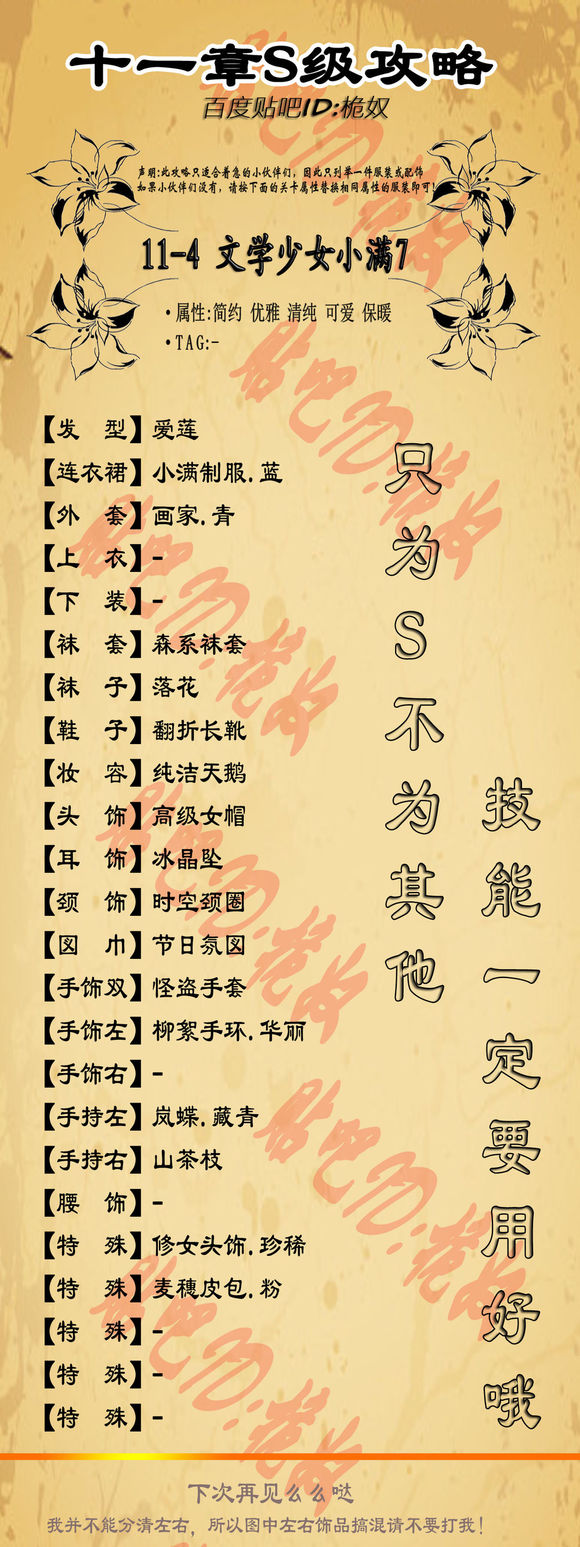 十一章S级攻略
百度贴吧ID:桅奴
声明:此攻略只适合着急的小伙伴们，因此只列举一件服装或配饰
如果小伙伴们没有，请按下面的关卡属性替换相同属性的服装即可!
11-4 文学少女小满7
·属性:简约 优雅 清纯 可爱 保暖
·TAG:-
【发 型】爱莲
【连衣裙】小满制服.蓝
【外 套】画家.青
【上 衣】-
【下 装】-
【袜 套】森系袜套
【袜 子】落花
【鞋 子】翻折长靴
【妆 容】纯洁天鹅
【头 饰】高级女帽
【耳 饰】冰晶坠
【颈 饰】时空颈圈
【图 巾】节日氛图
【手饰双】怪盗手套
【手饰左】柳絮手环.华丽
【手饰右】-
【手持左】岚蝶.藏青
【手持右】山茶枝
【腰 饰】-
【特 殊】修女头饰.珍稀
【特 殊】麦穗皮包.粉
【特 殊】-
【特 殊】-
【特 殊】-
只为S不为其他
技能一定要用好哦
贴吧ID:桅奴
贴吧ID:桅奴
贴吧ID:桅奴
贴吧ID:桅奴
贴吧ID:桅奴
贴吧ID:桅奴
下次再见么么哒
我并不能分清左右，所以图中左右饰品搞混请不要打我!